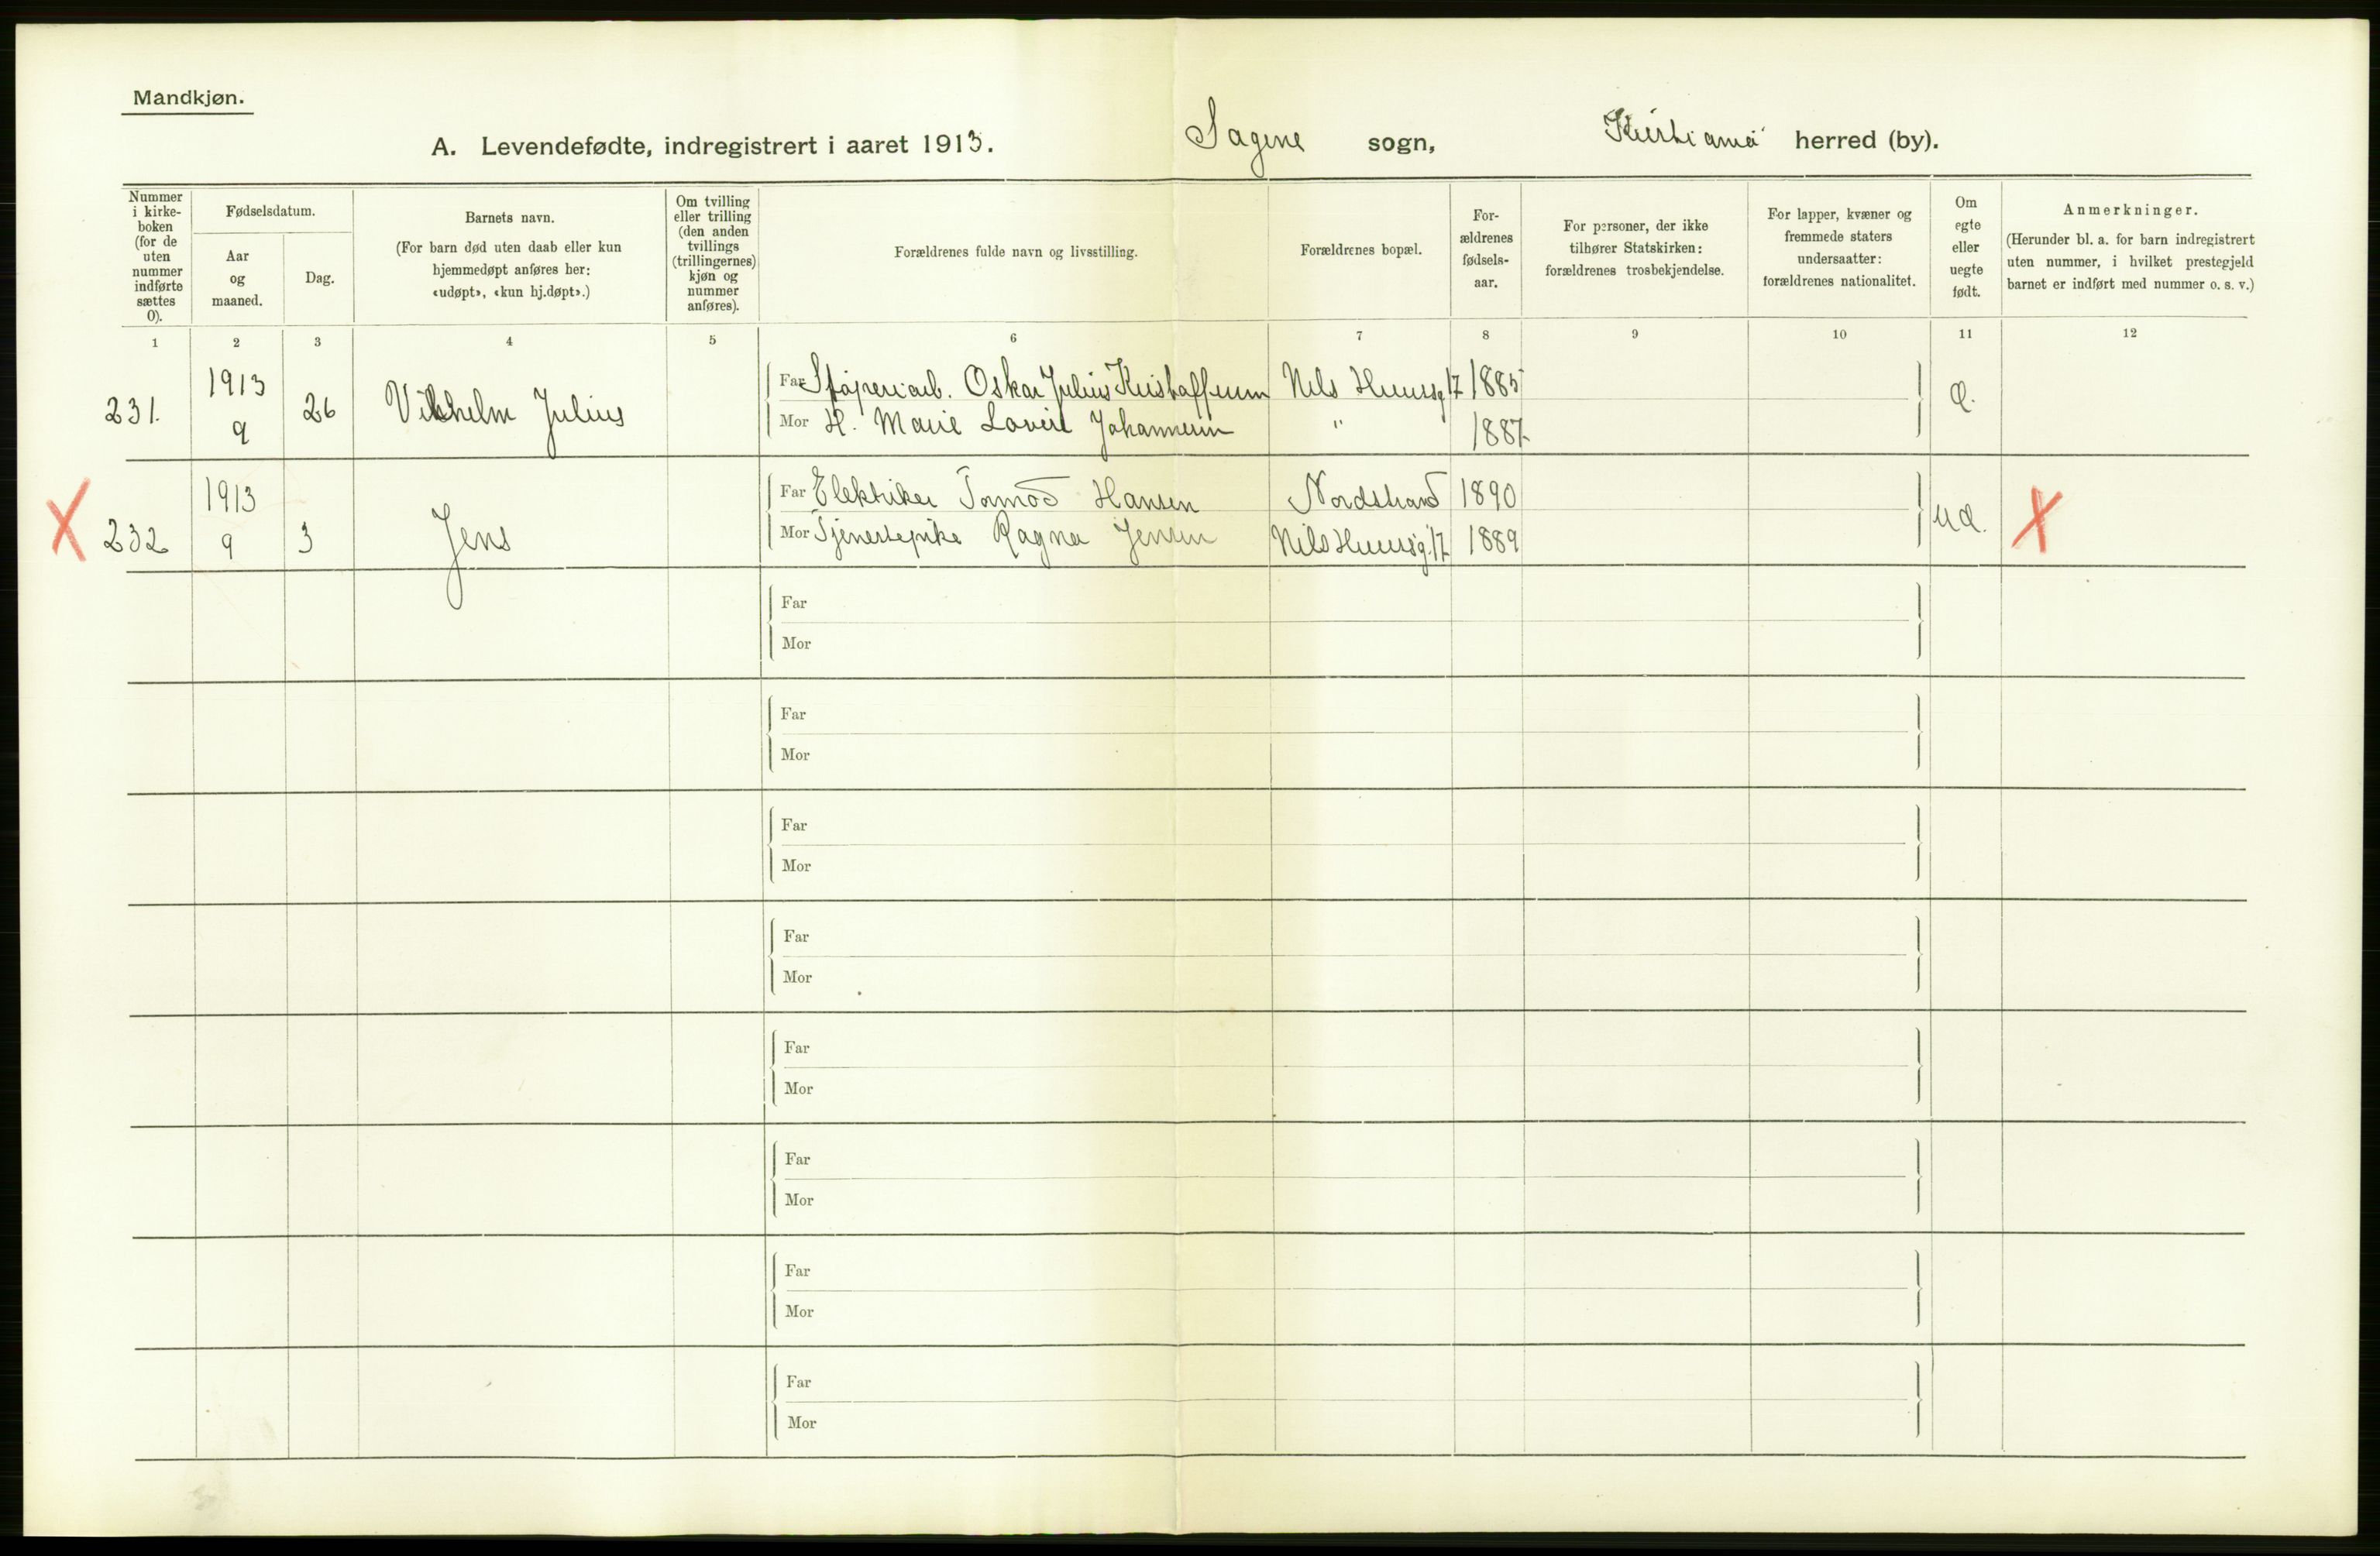 Mandkjøn.
A. Levendefødte, indregistrert i aaret 1913. Sagene sogn, Kristiania herred (by).
Nummer i kirke-boken (for de uten nummer indførte sættes 0).
Fødselsdatum.
Aar og maaned.
Dag.
Barnets navn.
(For barn død uten daab eller kun hjemmedøpt anføres her: «udøpt», «kun hj.døpt».)
Om tvilling eller trilling (den anden tvillings (trillingernes) kjøn og nummer anføres).
Forældrenes fulde navn og livsstilling.
Forældrenes bopæl.
For-ældrenes fødsels-aar.
For personer, der ikke tilhører Statskirken: forældrenes trosbekjendelse.
For lapper, kvæner og fremmede staters undersaatter: forældrenes nationalitet.
Om egte eller uegte født.
Anmerkninger.
(Herunder bl. a. for barn indregistrert uten nummer, i hvilket prestegjeld barnet er indført med nummer o. s. v.)
1 2 3 4 5 6 7 8 9 10 11 12
231. 1913 9 26 Vilhelm Julius
Far Støperiarb. Oskar Julius Kristoffersen Nils Huusg 17 1885
Mor H. Marie Lovise Johannesen " 1887
Æ.
X 232 1913 9 3 Jens
Far Elektriker Tormod Hansen Nordstrand 1890
Mor Tjenestepike Ragna Jensen Nils Huusg. 17 1889
UÆ. X
Far
Mor
Far
Mor
Far
Mor
Far
Mor
Far
Mor
Far
Mor
Far
Mor
Far
Mor